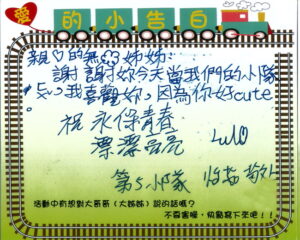 愛的小告白
親♡的無□姊姊:
謝謝妳今天當我們的小隊
長~我喜歡妳,因為你好cute
祝 永保青春
漂漂亮亮
第5小隊 敬上
活動中有想對大哥哥(大姊姊)說的話嗎?
不要害臊,勇敢寫下來吧!!